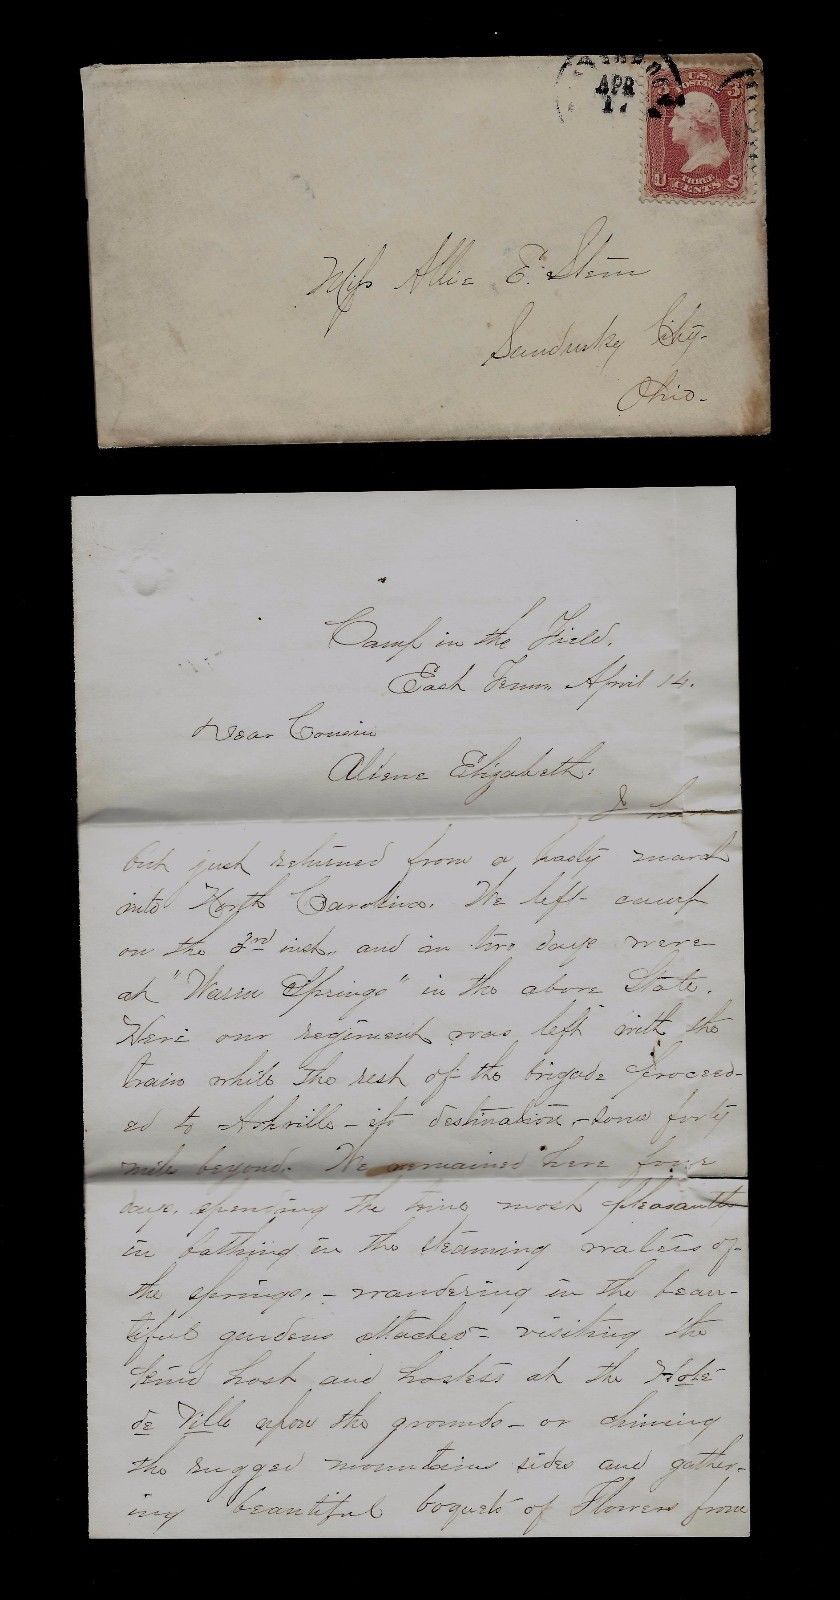 APR
17
U.S. POSTAGE
3 3
THREE
CENTS
U S
Miss Allie E. Stem
Sandusky City-
Ohio-
Camp in the Field.
East Tenn. April 14.
Dear Cousin
Aliene Elizabeth:
I have
but just returned from a hasty march
into North Carolina. We left camp
on the 3rd inst. and in two days were
at "Warm Springs" in the above State.
Here our regiment was left with the
train while the rest of the brigade proceed-
ed to Ashville - its destination, - some forty
mile beyond. We remained here four
days. spending the time most pleasantly
in bathing in the steaming waters of
the springs. - wandering in the beau-
tiful gardens attached - visiting the
kind host and hostess at the Hotè
de Ville upon the grounds - or climing
the rugged mountains sides and gather-
ing beautiful boquets of Flowers from